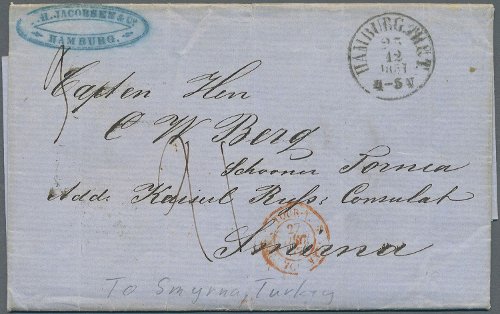 H. JACOBSEN & Co
HAMBURG.
HAMBURG. TH. & T.
25
12
4-5 N
Herrn
C W Berg
Schooner Tornea
Add: Kaiserl Russ: Consulat
Smirna
To Smyrna, Turkey